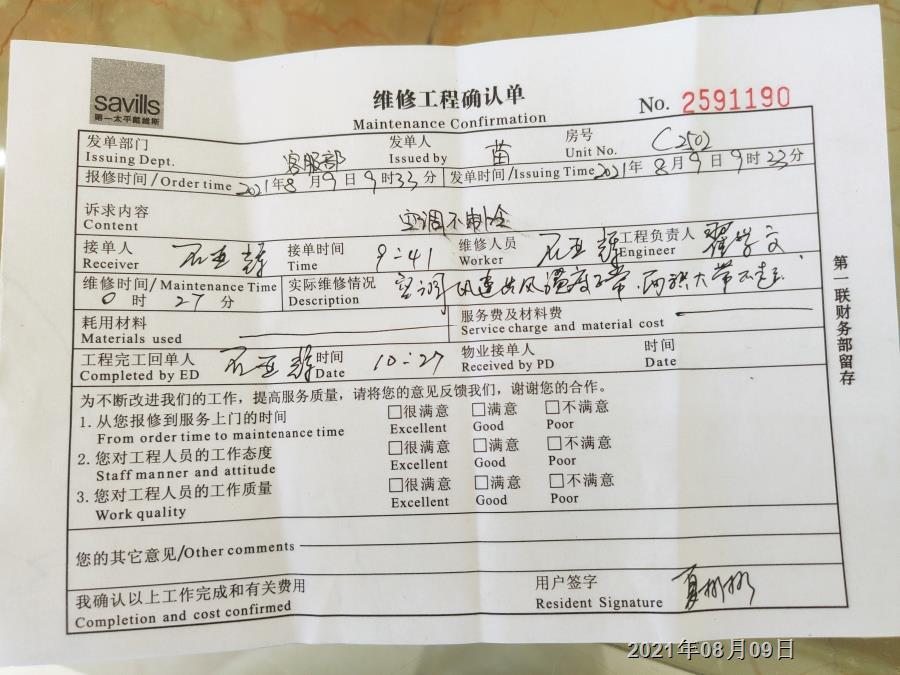 savills
第一太平戴維斯
维修工程确认单
Maintenance Confirmation
No. 2591190
发单部门 客服部 发单人 苗 房号 C2502
Issuing Dept. Issued by Unit No.
报修时间/Order time 2021年8月9日9时33分 发单时间/Issuing Time 2021年8月9日9时33分
诉求内容 空调不制冷
Content
接单人 石亚 接单时间 9:41 维修人员 石亚 工程负责人 翟学文
Receiver Time Worker Engineer
维修时间/Maintenance Time 实际维修情况 空调风速出风温度正常
0时27分 Description
耗用材料 服务费及材料费
Materials used Service charge and material cost
工程完工回单人 石亚 时间 10:27 物业接单人 时间
Completed by ED Date Received by PD Date
为不断改进我们的工作，提高服务质量，请将您的意见反馈我们，谢谢您的合作。
1. 从您报修到服务上门的时间 □很满意 □满意 □不满意
From order time to maintenance time Excellent Good Poor
2. 您对工程人员的工作态度 □很满意 □满意 □不满意
Staff manner and attitude Excellent Good Poor
3. 您对工程人员的工作质量 □很满意 □满意 □不满意
Work quality Excellent Good Poor
您的其它意见/Other comments
我确认以上工作完成和有关费用 用户签字
Completion and cost confirmed Resident Signature
第一联财务部留存
2021年08月09日